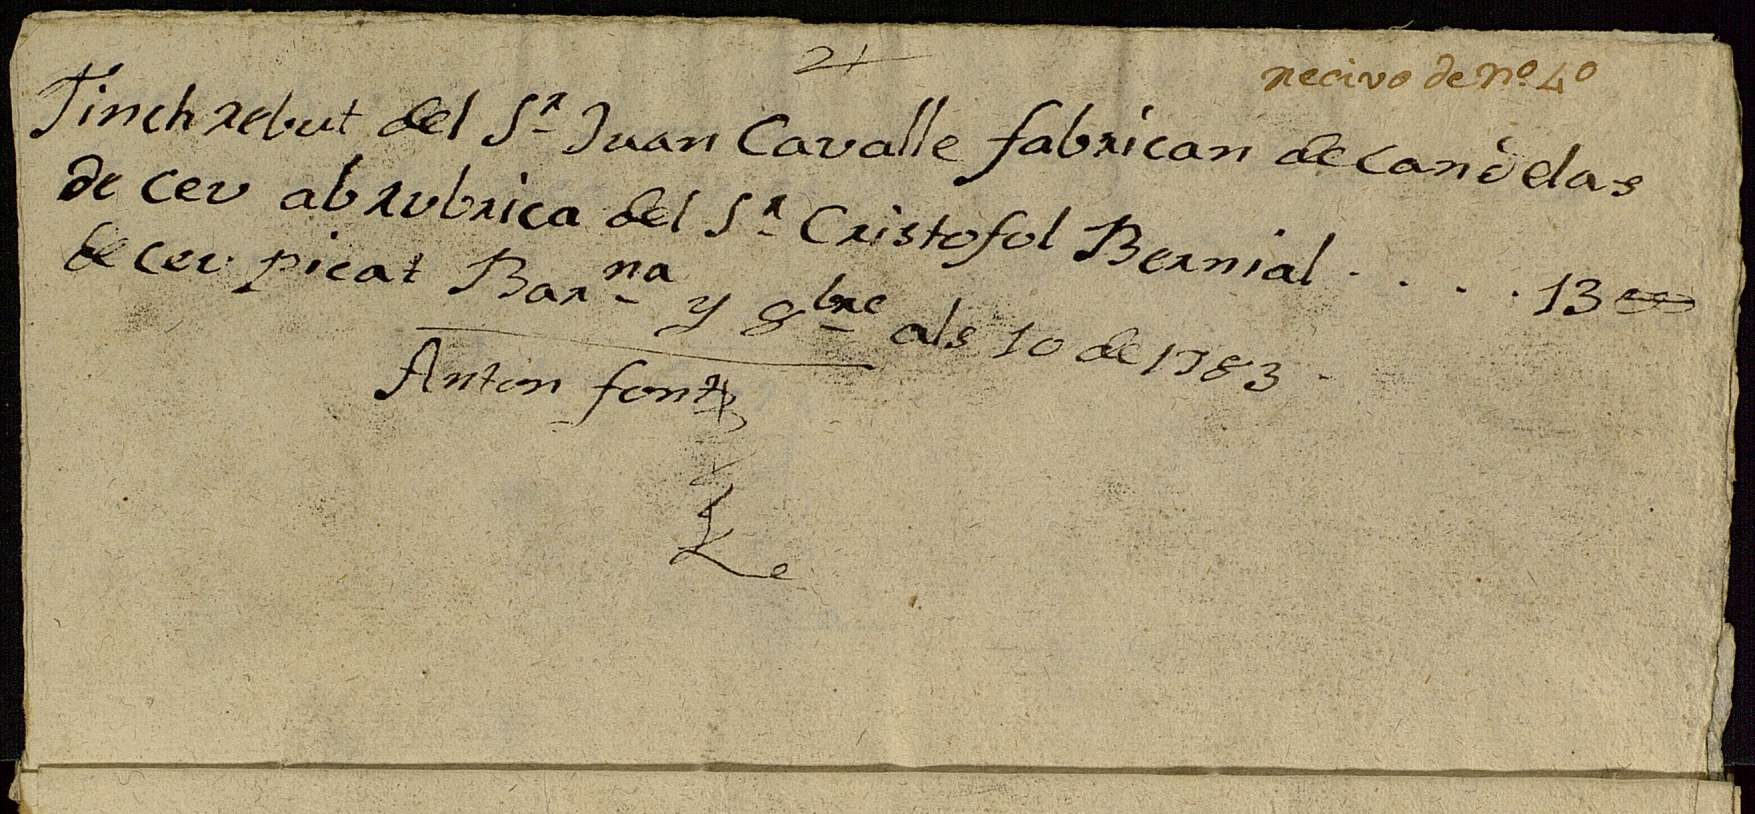 21
recivo de nº. 4º
Tinch rebut del Sr Juan Cavalle fabrican de candelas
de ceu ab rubrica del Sr Cristofol Bernial . . . . 13
de ceu picat Barna y 8bre als 10 de 1783.
Anton font